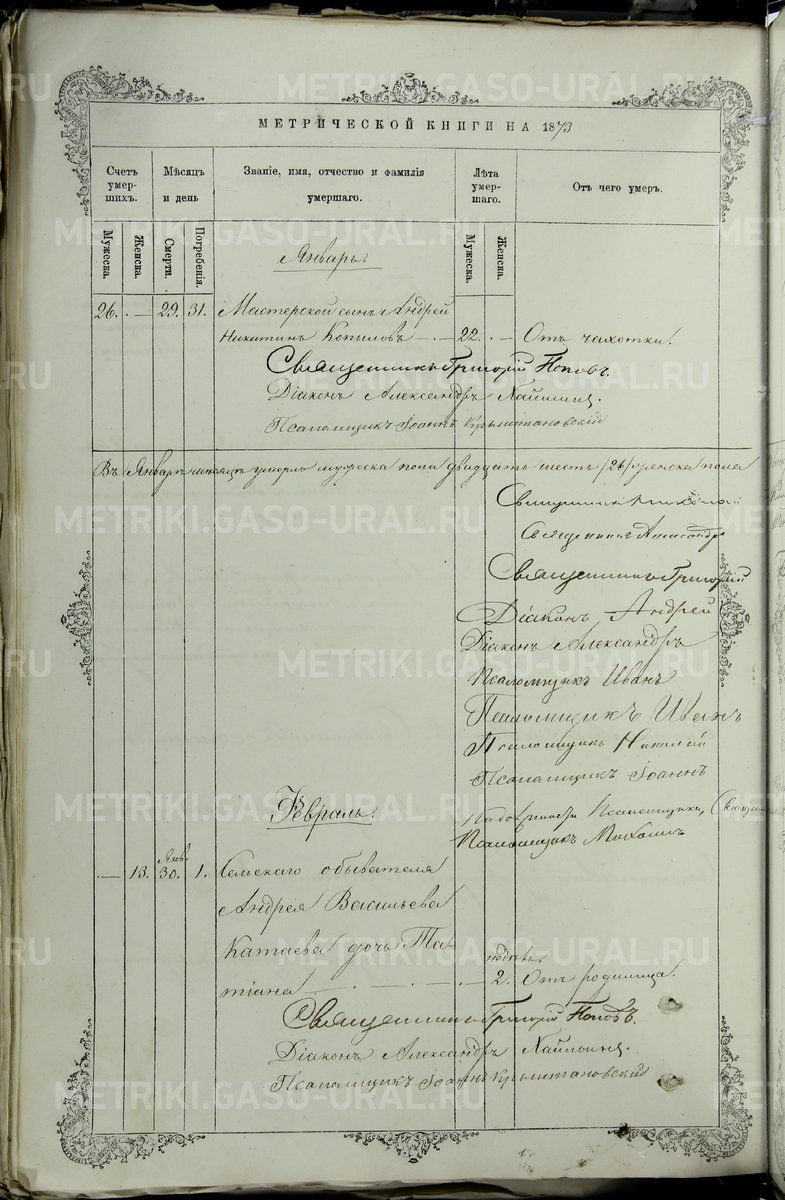 МЕТРИЧЕСКОЙ КНИГИ НА 1873
Счетъ умер-шихъ.
Мѣсяцъ и день
Званіе, имя, отчество и фамилія умершаго.
Лѣта умер-шаго.
Отъ чего умеръ.
Мужеска.
Женска.
Смерти.
Погребенія.
Мужеска.
Женска.
Январь.
26. — 29. 31. Мастерской сынъ Андрей
Никитинъ Копыловъ — 22. — Отъ чахотки.
Священникъ Григорій Поповъ.
Діаконъ Александръ
Псаломщикъ Іоаннъ Крыштановскій
Въ Январѣ мѣсяцѣ умерло мужеска пола двадцать шесть /26/ женска пола
Священникъ
Священникъ Александръ
Священникъ Григорій
Діаконъ Андрей
Діаконъ Александръ
Псаломщикъ Иванъ
Псаломщикъ
Псаломщикъ Николай
Псаломщикъ Іоаннъ
Февраль.
Псаломщика
Псаломщикъ Михаилъ
Янв.
— 13. 30. 1. Сельскаго обывателя
Андрея Васильева
Катаева дочь Та-
недѣль
тіана — 2. Отъ родимца.
Священникъ Григорій Поповъ.
Діаконъ Александръ
Псаломщикъ Іоаннъ Крыштановскій
METRIKI.GASO-URAL.RU